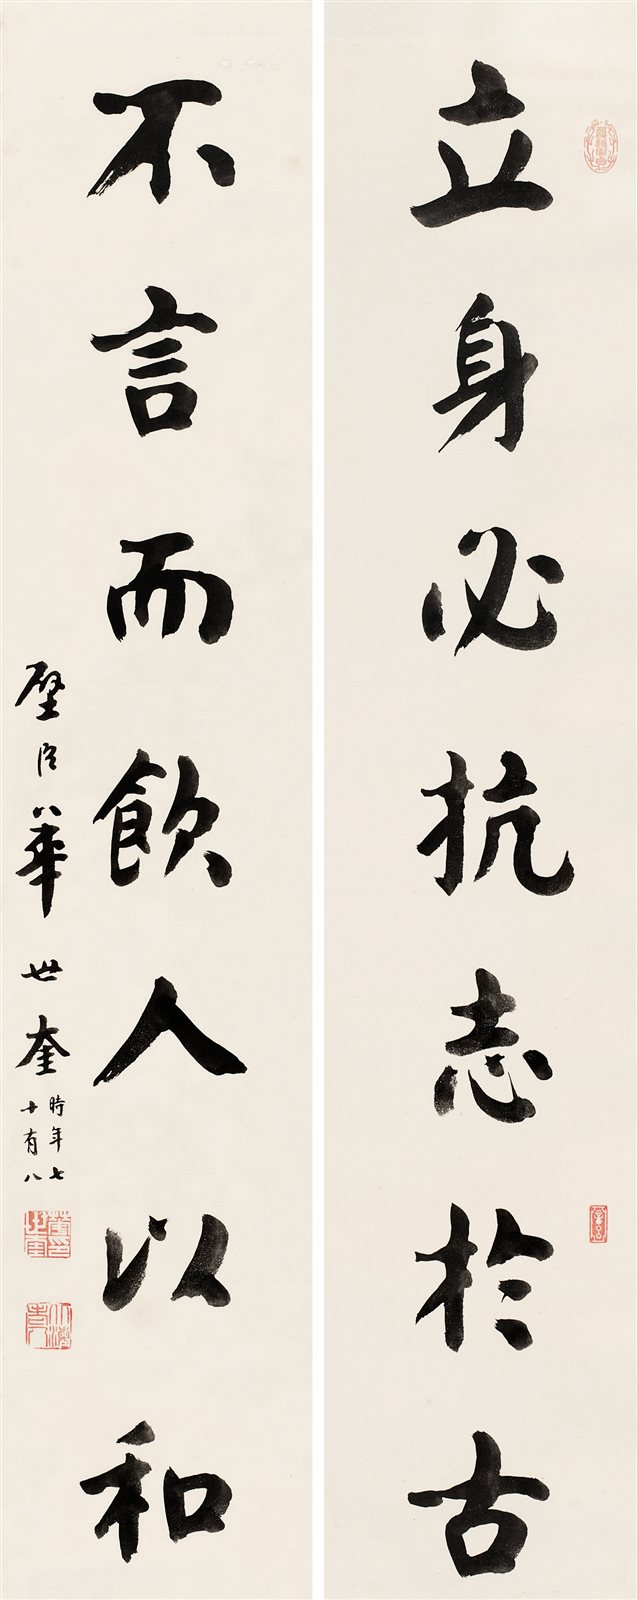 立身必抗志於古
不言而飲人以和
璧臣華世奎
時年七
十有八